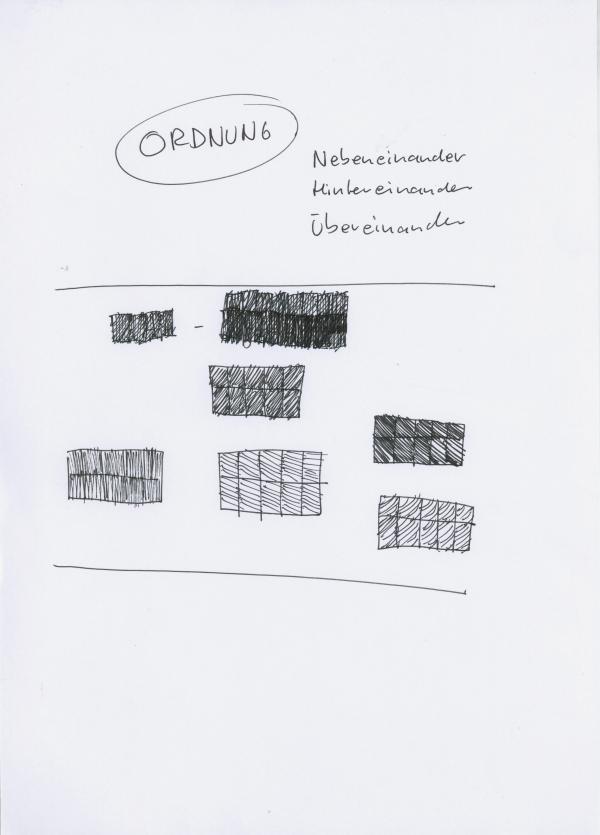 ORDNUNG
Nebeneinander
Hintereinander
Übereinander